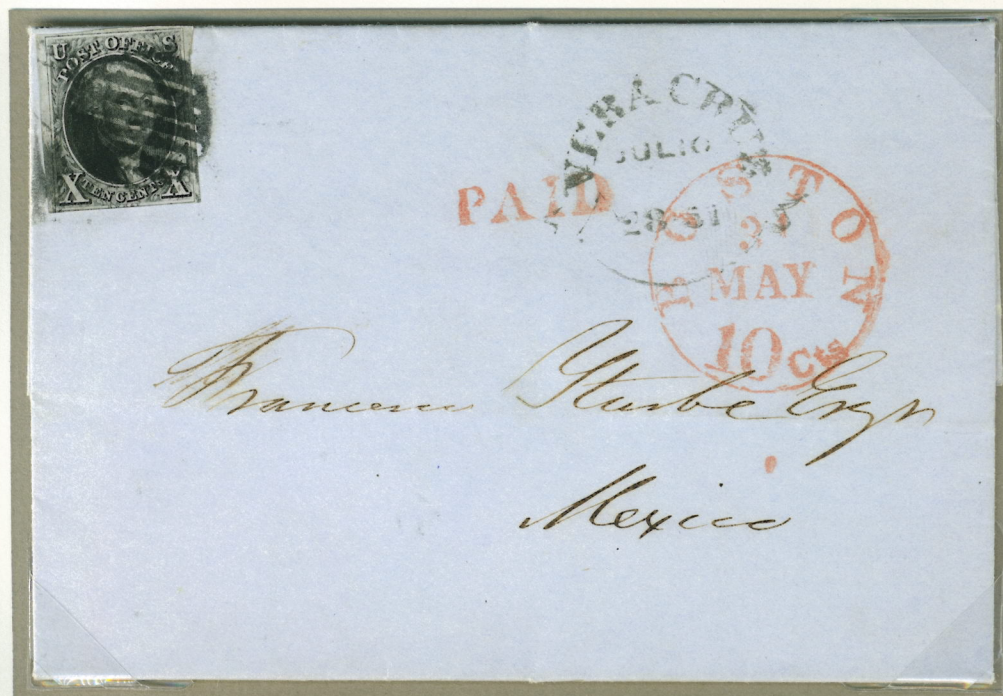 U S
POST OFFICE
X TEN CENTS X
VERA CRUZ
JULIO
28 51
PAID
BOSTON
3
MAY
10 Cts
Iturbe Esqr
Mexico